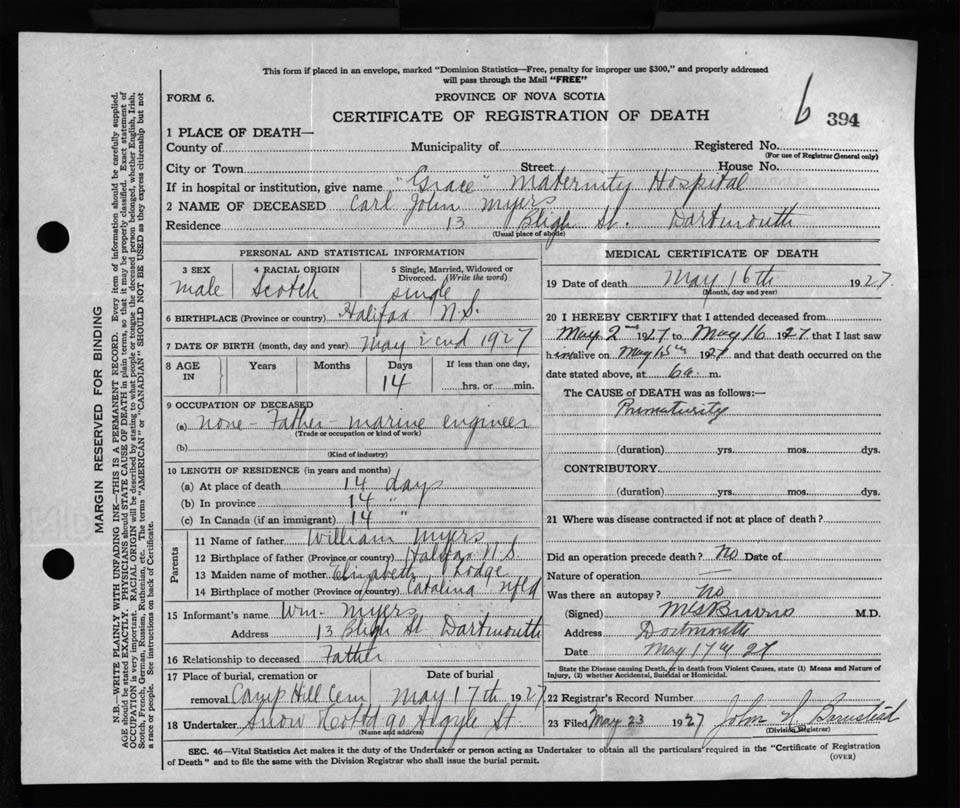 This form if placed in an envelope, marked "Dominion Statistics—Free, penalty for improper use $300," and properly addressed
will pass through the Mail "FREE"
FORM 6.
PROVINCE OF NOVA SCOTIA
6 394
CERTIFICATE OF REGISTRATION OF DEATH
1 PLACE OF DEATH—
County of Municipality of Registered No.
(For use of Registrar General only)
City or Town Street House No.
If in hospital or institution, give name "Grace" Maternity Hospital
2 NAME OF DECEASED Carl John Myers
Residence 13 Bligh St. Dartmouth
(Usual place of abode)
PERSONAL AND STATISTICAL INFORMATION
3 SEX 4 RACIAL ORIGIN 5 Single, Married, Widowed or
Divorced. (Write the word)
male Scotch single
6 BIRTHPLACE (Province or country) Halifax N.S.
7 DATE OF BIRTH (month, day and year) May 2nd 1927
8 AGE IN Years Months Days If less than one day,
14 hrs. or min.
9 OCCUPATION OF DECEASED
(a) none - Father - marine engineer
(Trade or occupation or kind of work)
(b)
(Kind of industry)
10 LENGTH OF RESIDENCE (in years and months)
(a) At place of death 14 days
(b) In province 14 "
(c) In Canada (if an immigrant) 14 "
Parents
11 Name of father William Myers
12 Birthplace of father (Province or country) Halifax N.S.
13 Maiden name of mother Elizabeth Lodge
14 Birthplace of mother (Province or country) Catalina Nfld
15 Informant's name Wm. Myers
Address 13 Bligh St Dartmouth
16 Relationship to deceased Father
17 Place of burial, cremation or Date of burial
removal Camp Hill Cem May 17th 1927
18 Undertaker Snow & Co Ltd 90 Argyle St
(Name and address)
MEDICAL CERTIFICATE OF DEATH
19 Date of death May 16th 1927.
(Month, day and year)
20 I HEREBY CERTIFY that I attended deceased from
May 2nd 1927 to May 16 1927 that I last saw
him alive on May 15th 1927 and that death occurred on the
date stated above, at 6 a. m.
The CAUSE of DEATH was as follows:—
Prematurity
(duration) yrs. mos. dys.
CONTRIBUTORY
(duration) yrs. mos. dys.
21 Where was disease contracted if not at place of death?
Did an operation precede death? no Date of
Nature of operation —
Was there an autopsy? no
(Signed) M.D.
Address Dartmouth
Date May 17th 27
State the Disease causing Death, or in death from Violent Causes, state (1) Means and Nature of
Injury, (2) whether Accidental, Suicidal or Homicidal.
22 Registrar's Record Number
23 Filed May 23 1927 John
(Division Registrar)
SEC. 46—Vital Statistics Act makes it the duty of the Undertaker or person acting as Undertaker to obtain all the particulars required in the "Certificate of Registration
of Death" and to file the same with the Division Registrar who shall issue the burial permit.
(OVER)
MARGIN RESERVED FOR BINDING
N.B.—WRITE PLAINLY WITH UNFADING INK—THIS IS A PERMANENT RECORD. Every item of information should be carefully supplied.
AGE should be stated EXACTLY. PHYSICIANS should STATE CAUSE OF DEATH in plain terms, so that it may be properly classified. Exact statement of
OCCUPATION is very important. RACIAL ORIGIN will be described by stating to what people or tongue the deceased person belonged, whether English, Irish,
Scotch, French, German, Russian, Ruthenian, etc. The terms "AMERICAN" or "CANADIAN" SHOULD NOT BE USED as they express citizenship but not
a race or people. See instructions on back of Certificate.